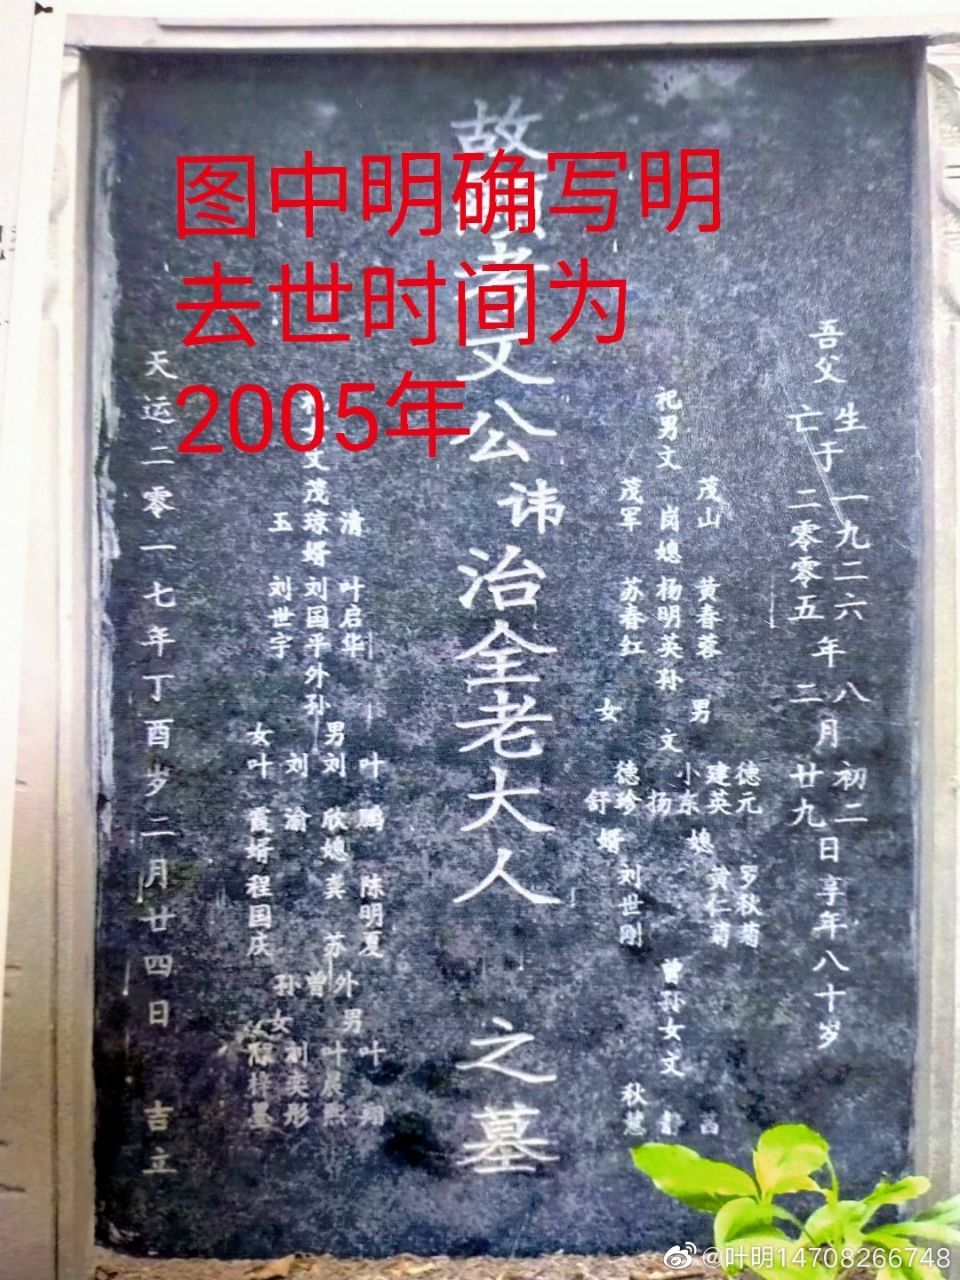 图中明确写明
去世时间为
2005年
吾父
生 一九二六 八 初二
亡于 二零零五 年 二 月 廿九 日享年八十岁
祀男文
茂山 黄春蓉
岗媳杨明英孙
茂军 苏春红
男
女
文
德元 罗秋菊
建英 黄仁菊
小东 媳
扬
德珍
舒 婿 刘世刚
曾孙女文
秋慧
故
者文公讳治全老大人之墓
文茂琼婿刘国平外孙
清 叶启华
玉 刘世宇
男
女
叶鹏 陈明夏
刘欣媳龚苏
刘渝
叶霞婿程国庆
外
曾
孙
男
女
叶翔
叶宸熙
刘奕彤
天运二零一七年丁酉岁二月廿四日 吉立
@叶明14708266748